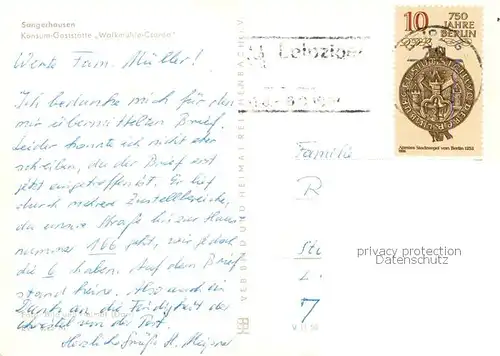 Sangerhausen
Konsum-Gaststätte „Walkmühle-Casino"
Werte Fam. Müller!
Ich bedanke mich für den
mir übermittelten Brief.
Leider konnte ich nicht eher
schreiben, da der Brief erst
jetzt eingetroffen ist. Er lief
durch mehrere Zustellbereiche,
da unsere Straße bis zur Haus
nummer 166 geht, wir jedoch
die 6 haben. Auf dem Brief
stand keine. Also auch ein
Dank an die Findigkeit der
Christel von der Post.
Herzliche Grüße H.
VEB BILD UND HEIMAT REICHENBACH I. V.
Leipziger
10
750
JAHRE
BERLIN
Ältestes Stadtsiegel von Berlin 1253
DDR
Familie
R
St
7
privacy protection
Datenschutz